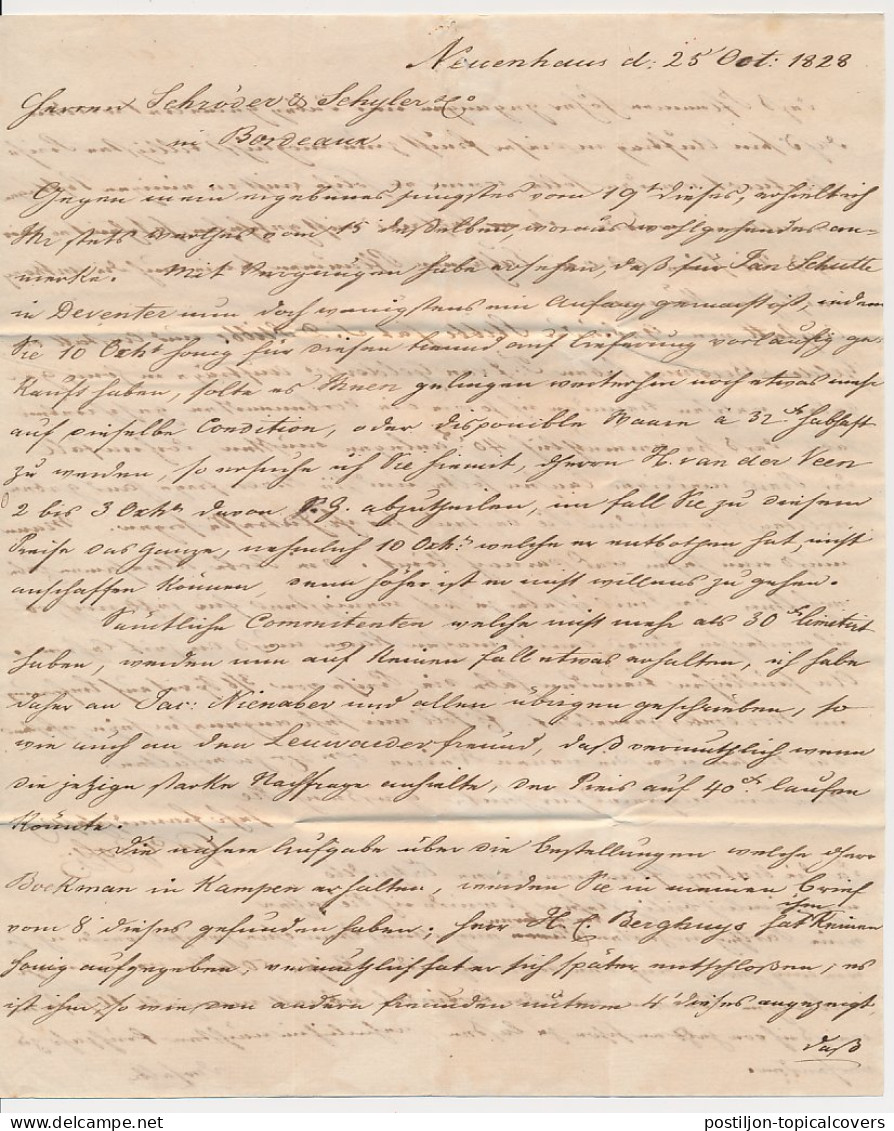 Neuenhaus d: 25 Oct: 1828
Herren Schröder & Schyler & Co
in Bordeaux
Gegen mein ergebenes jüngstes vom 19t dieses, erhielt ich
Ihr stets werthes vom 15 desselben, woraus wohlgehendes an-
merke. Mit Vergnügen habe ersehen, daß für Jan Schutte
in Deventer nun doch wenigstens ein Anfang gemacht ist, indem
Sie 10 Oxht honig für diesen freund auf lieferung vorlaufig ge-
kauft haben, solte es Ihnen gelingen weiterhin noch etwas mehr
auf dieselbe Condition, oder disponible Waare a 32 habhaft
zu werden, so ersuche ich Sie hiemit, Herrn H. van der Veen
2 bis 3 Oxht davon abzutheilen, im fall Sie zu diesem
Preise das Ganze, nehmlich 10 Oxht welche er entbothen hat, nicht
anschaffen können, denn höher ist er nicht willens zu gehen.
Sämtliche Committenten welche nicht mehr als 30 limitirt
haben, werden nun auf keinen fall etwas erhalten, ich habe
daher an Jac: Nienaber und allen übrigen geschrieben, so
wie auch an den Leuwarder freund, daß vermuthlich wenn
die jetzige starke Nachfrage anhielte, der Preis auf 40 laufen
könnte.
Die nähere Aufgabe über die bestellungen welche Herr
Boekman in Kampen erhalten, werden Sie in meinen brief
vom 8 dieses gefunden haben; Herr H. C. Berghuys hat ihm keinen
honig aufgegeben, vermuthlich hat er sich später entschloßen, es
ist ihm, so wie den andern freunden unterm 4 dieses angezeigt,
daß
postiljon-topicalcovers